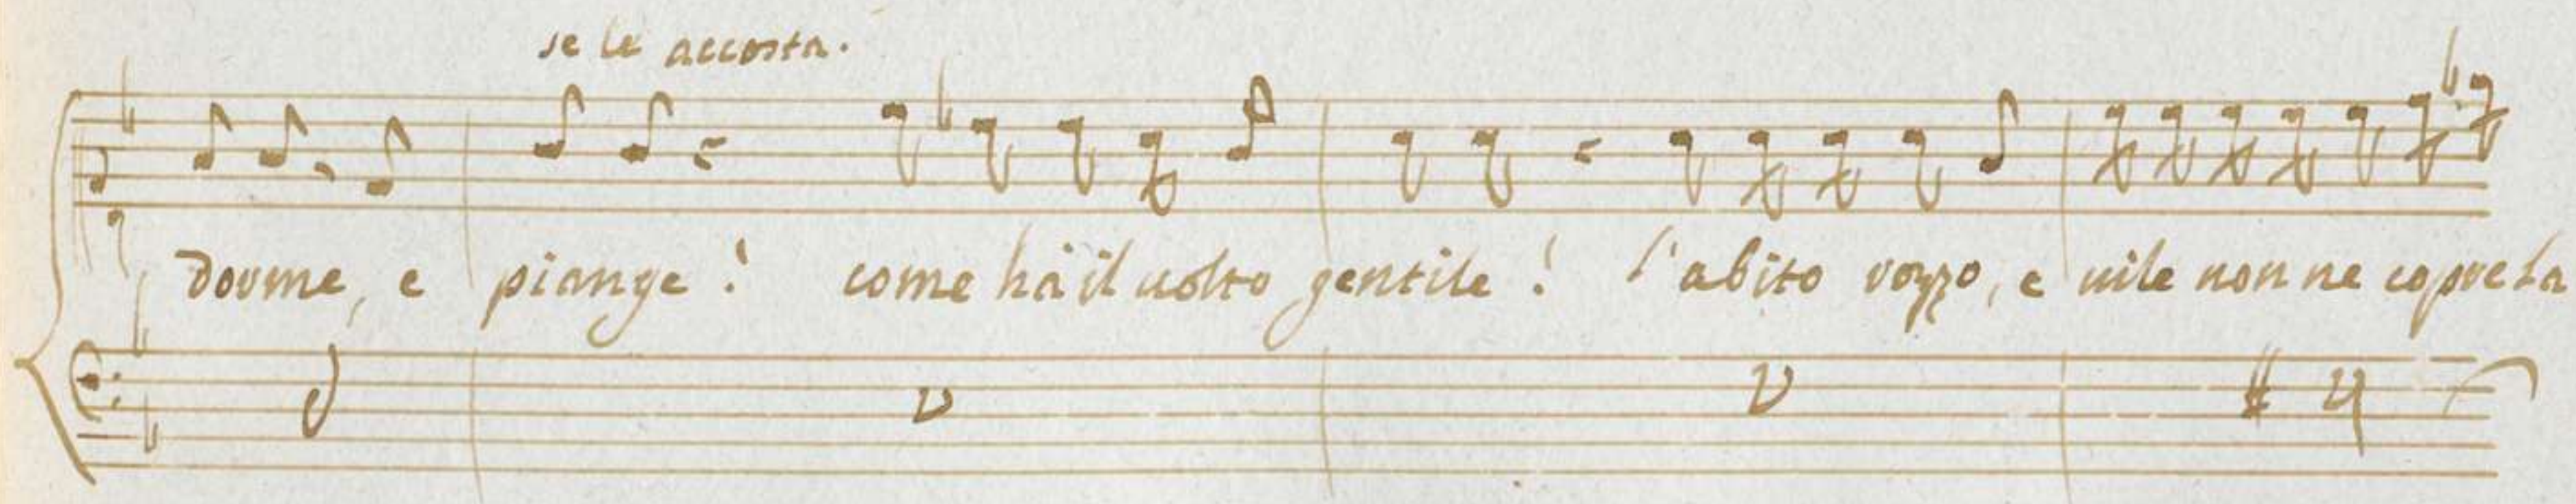 se le accosta.
dorme, e piange! come hà il uolto gentile! l'abito rozzo, e uile non ne copre la